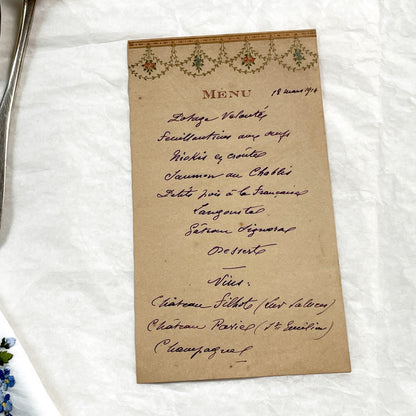 MENU
18 mars 1914
Potage Velouté
Feuillantines aux œufs
en croûtes
Saumon au Chablis
Petits pois à la Française
Langouste
Gâteau
Desserts
Vins:
Château Filhot (Lur Saluces)
Château Pavie (St Emilion)
Champagne